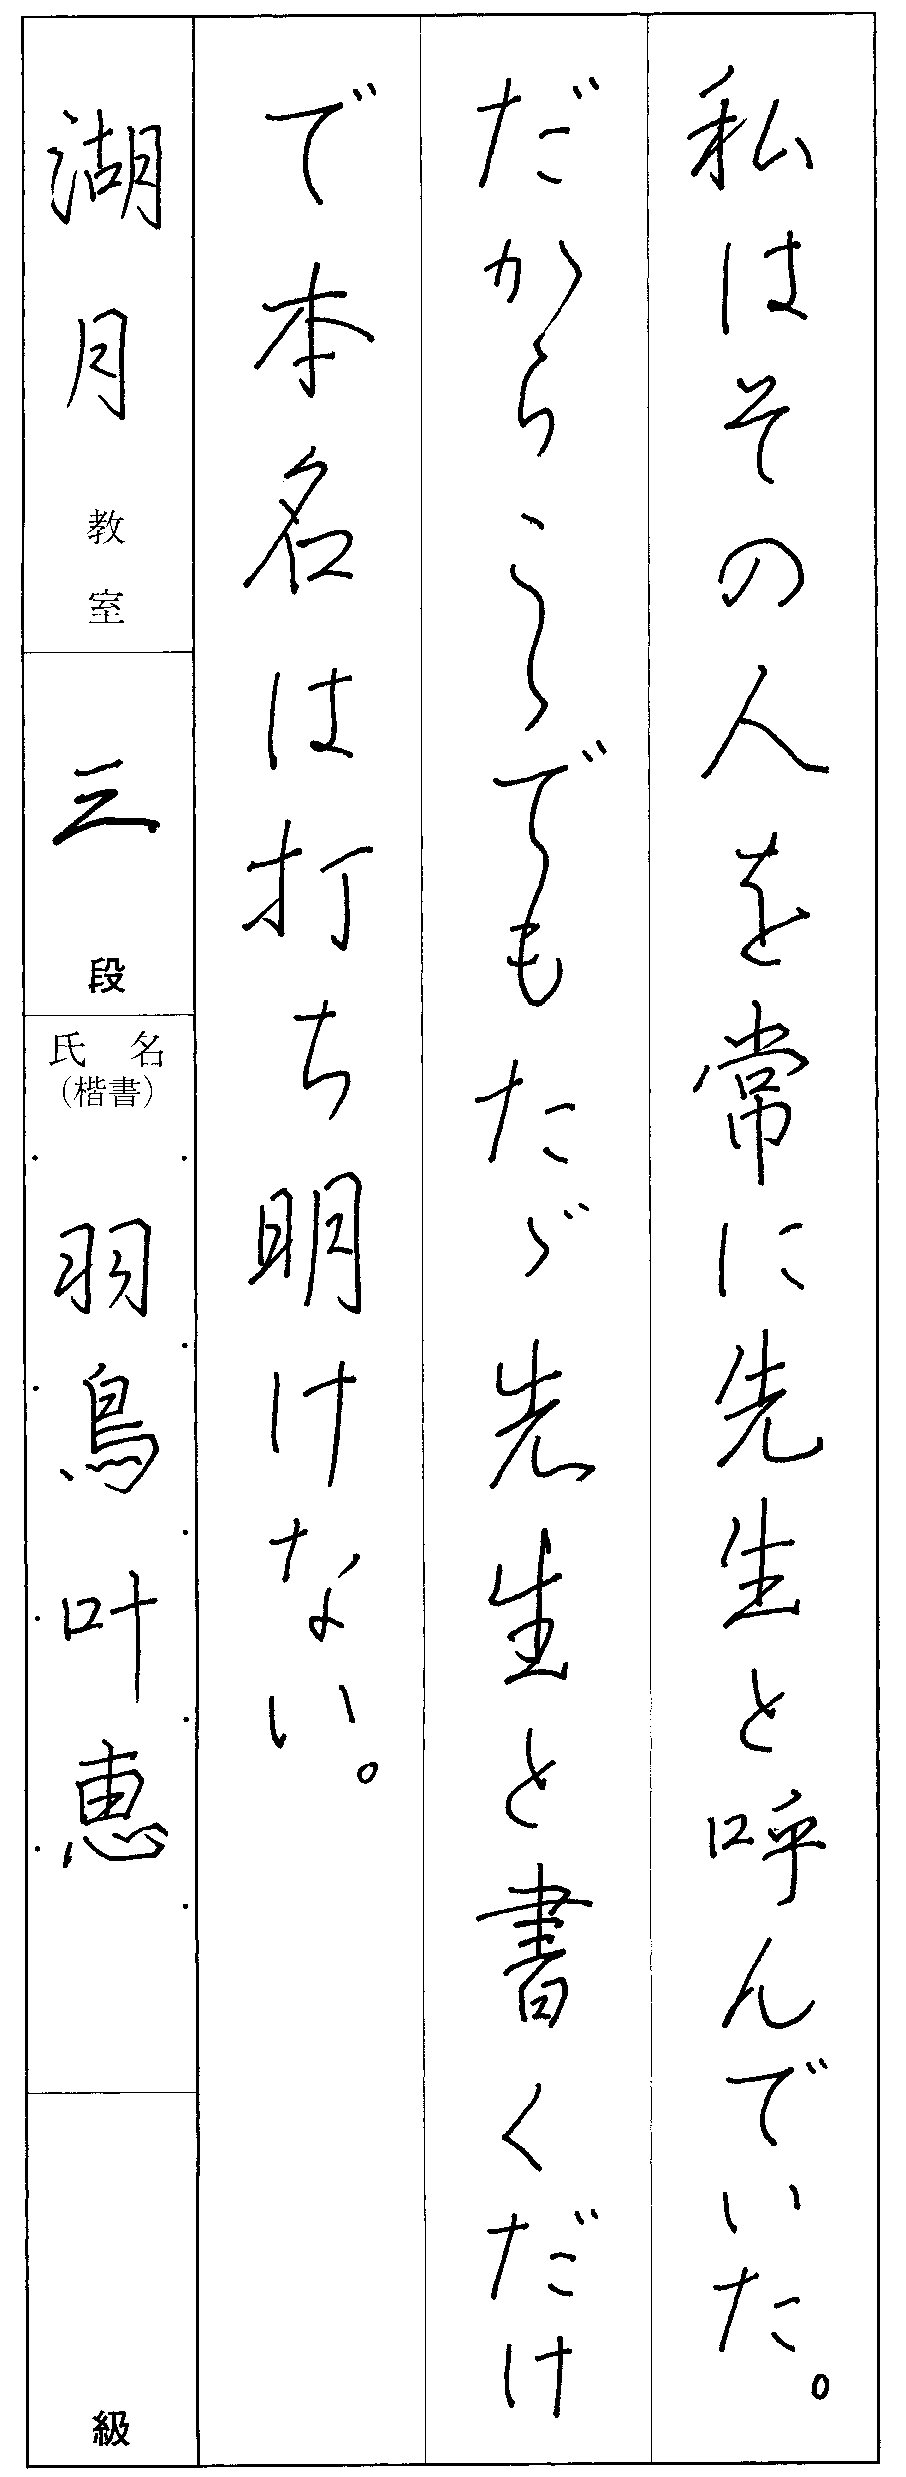 私はその人を常に先生と呼んでいた。
だからこゝでもたゞ先生と書くだけ
で本名は打ち明けない。
湖月教室
三段
氏名
(楷書)
羽鳥叶恵
級